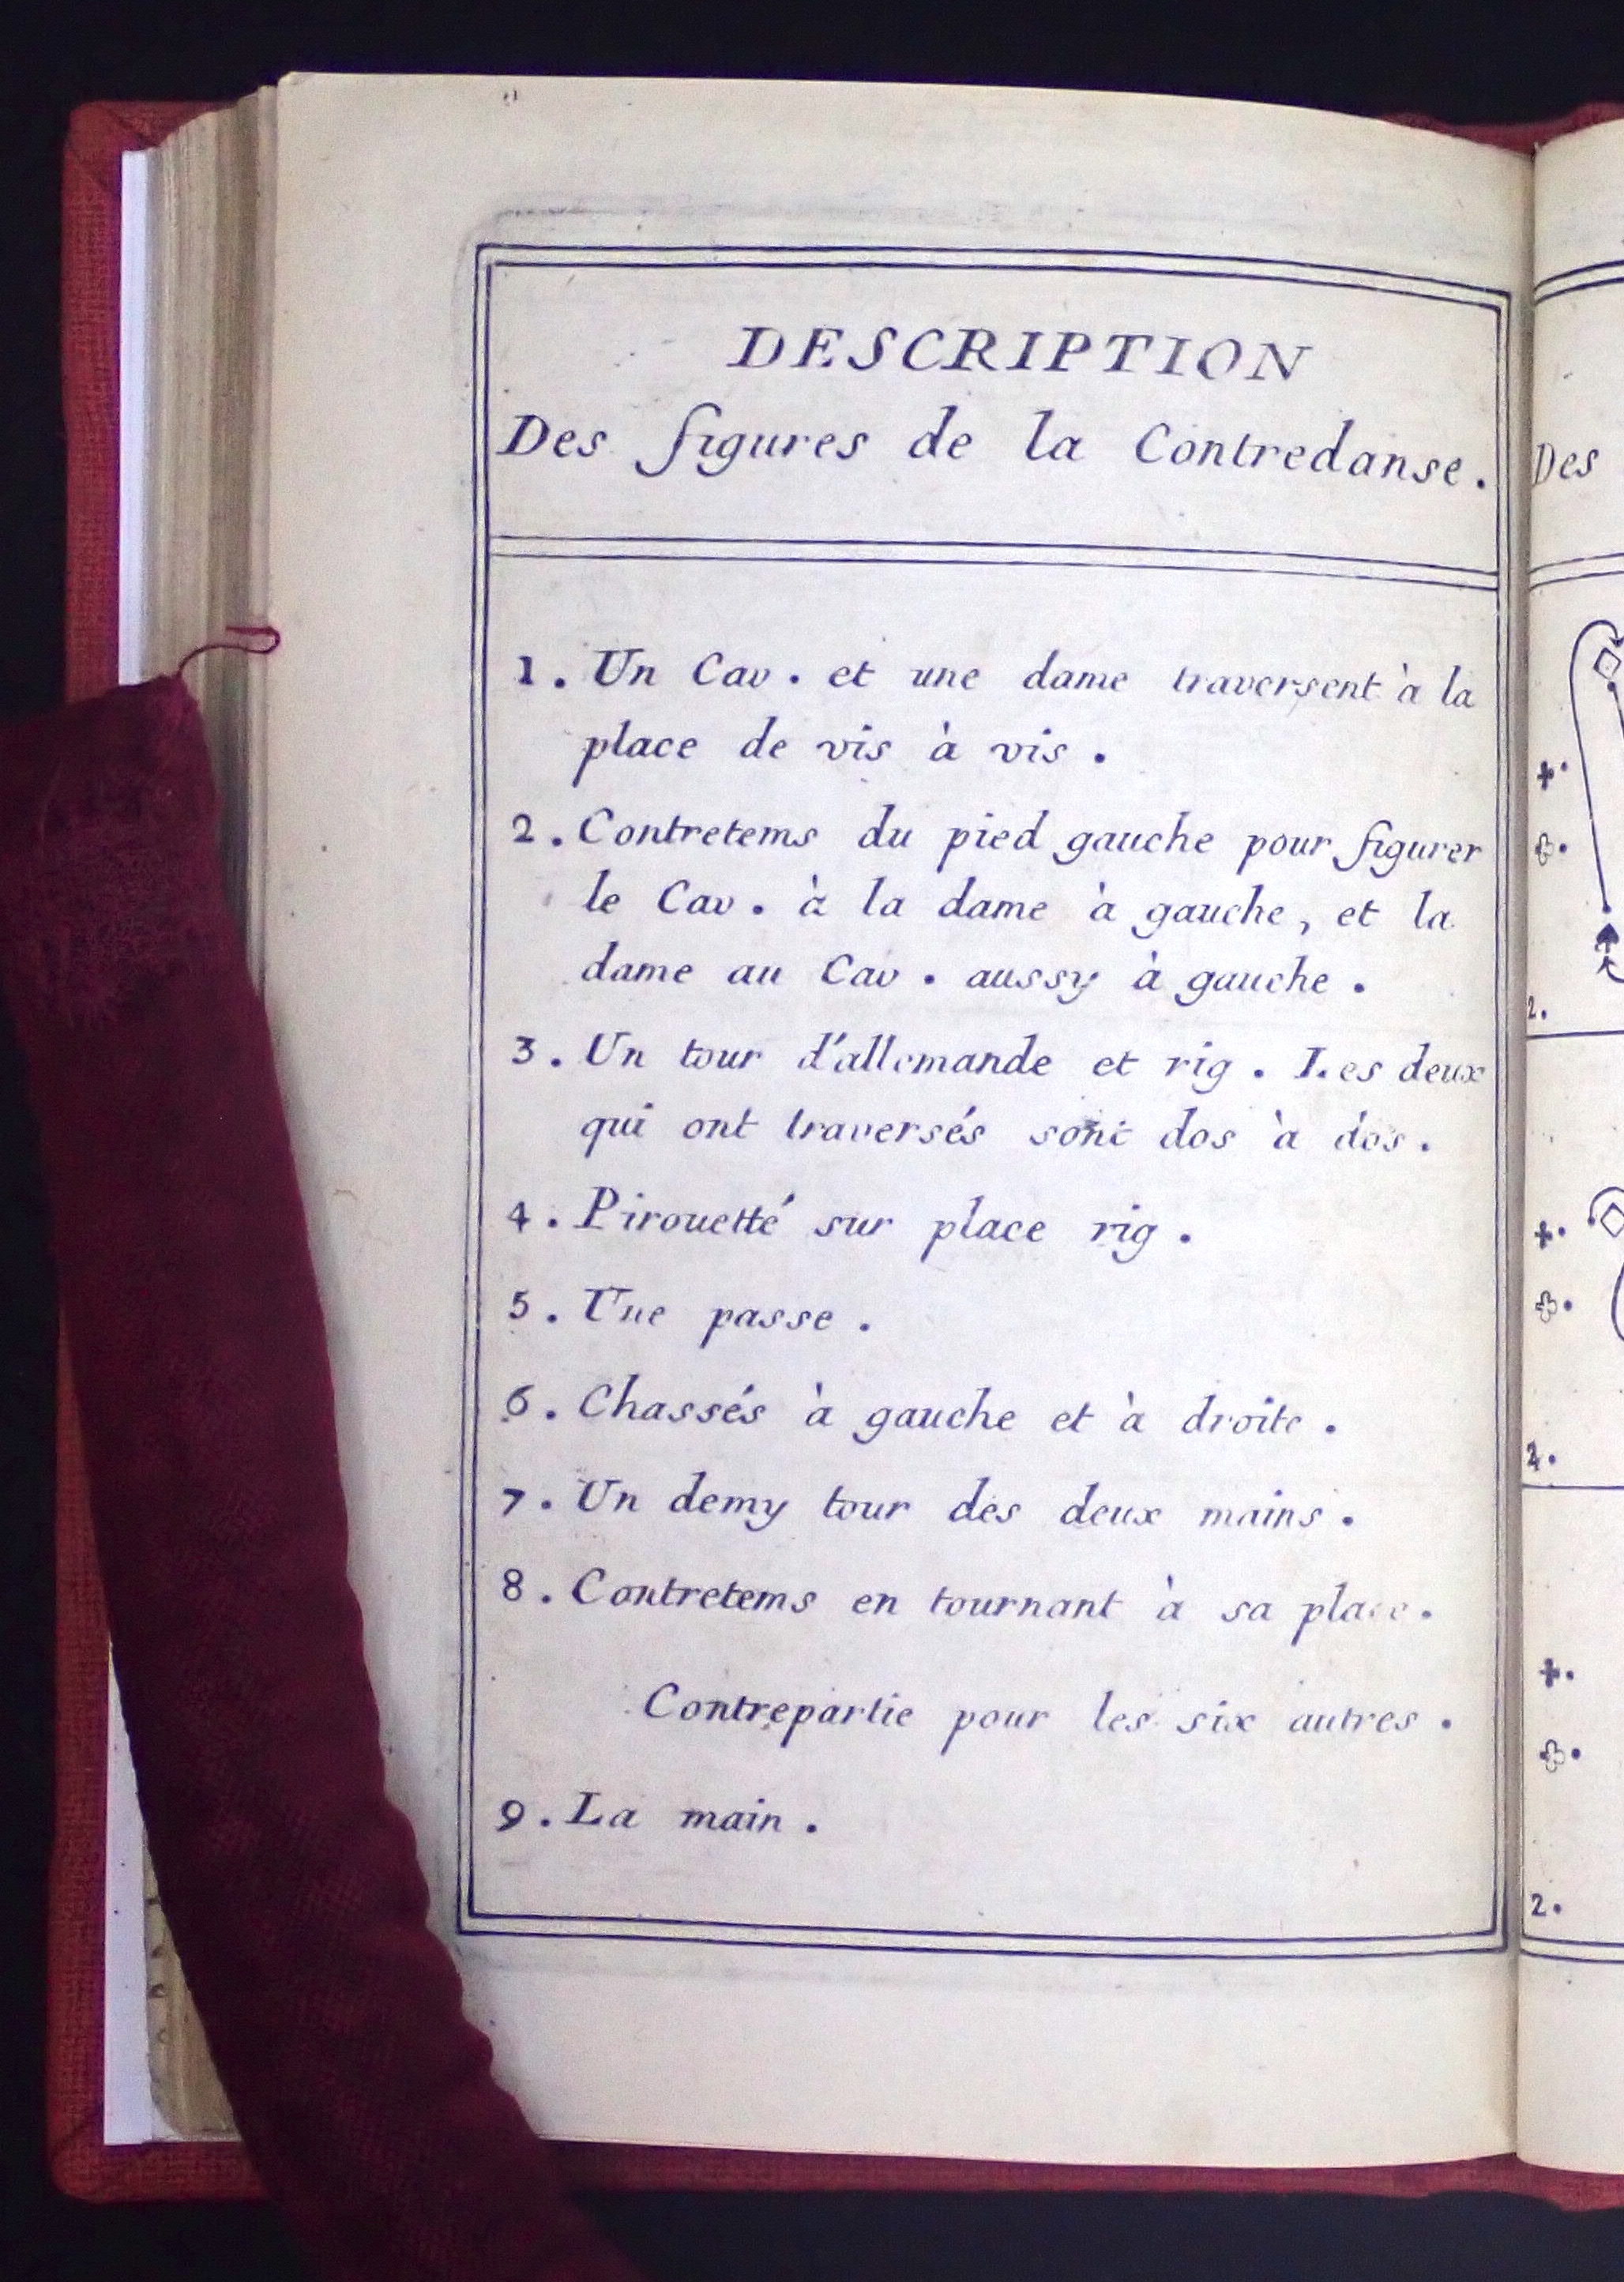 DESCRIPTION
Des figures de la Contredanse.
1. Un Cav. et une dame traversent à la
place de vis à vis.
2. Contretems du pied gauche pour figurer
le Cav. à la dame à gauche, et la
dame au Cav. aussy à gauche.
3. Un tour d'allemande et rig. Les deux
qui ont traversés sont dos à dos.
4. Pirouetté sur place rig.
5. Une passe.
6. Chassés à gauche et à droite.
7. Un demy tour des deux mains.
8. Contretems en tournant à sa place.
Contrepartie pour les six autres.
9. La main.
Des
2.
2.